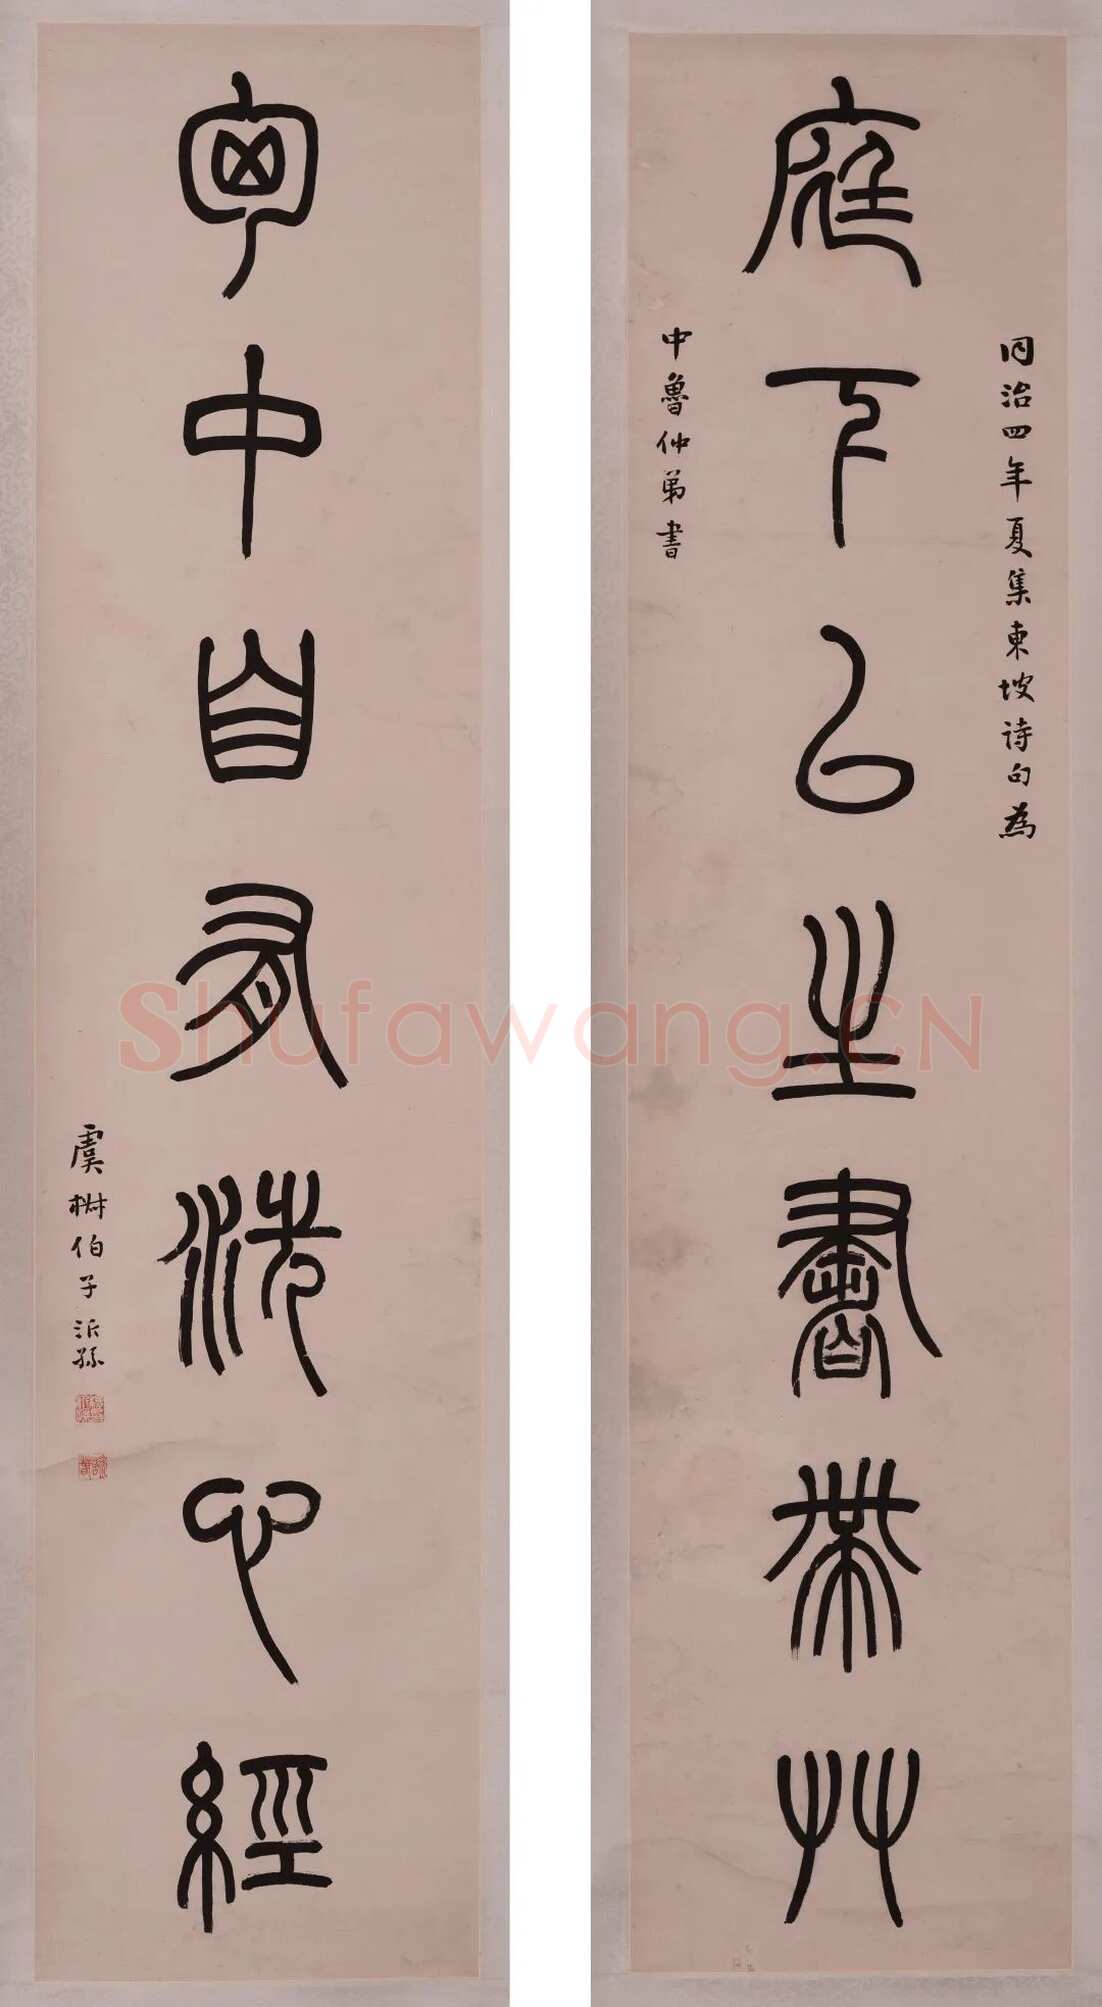 庭下已生書帶草
同治四年夏集東坡詩句為
中魯仲弟書
匈中自有洗心經
虞 伯子沂孫
Shufawang.CN